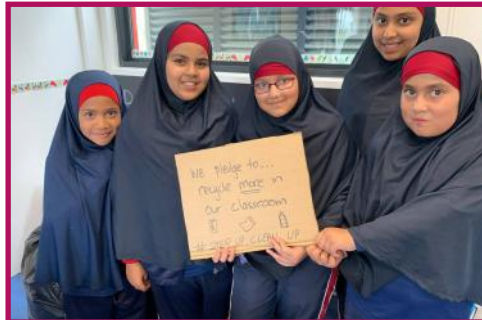 We pledge to...
recycle more in
our classroom
# STEP UP CLEAN UP